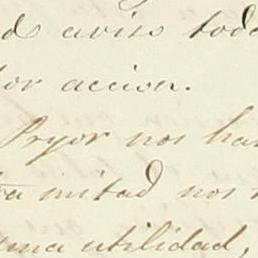 d aviso toda
or accion.
Pryor nos ha
ra mitad nos
ma utilidad,